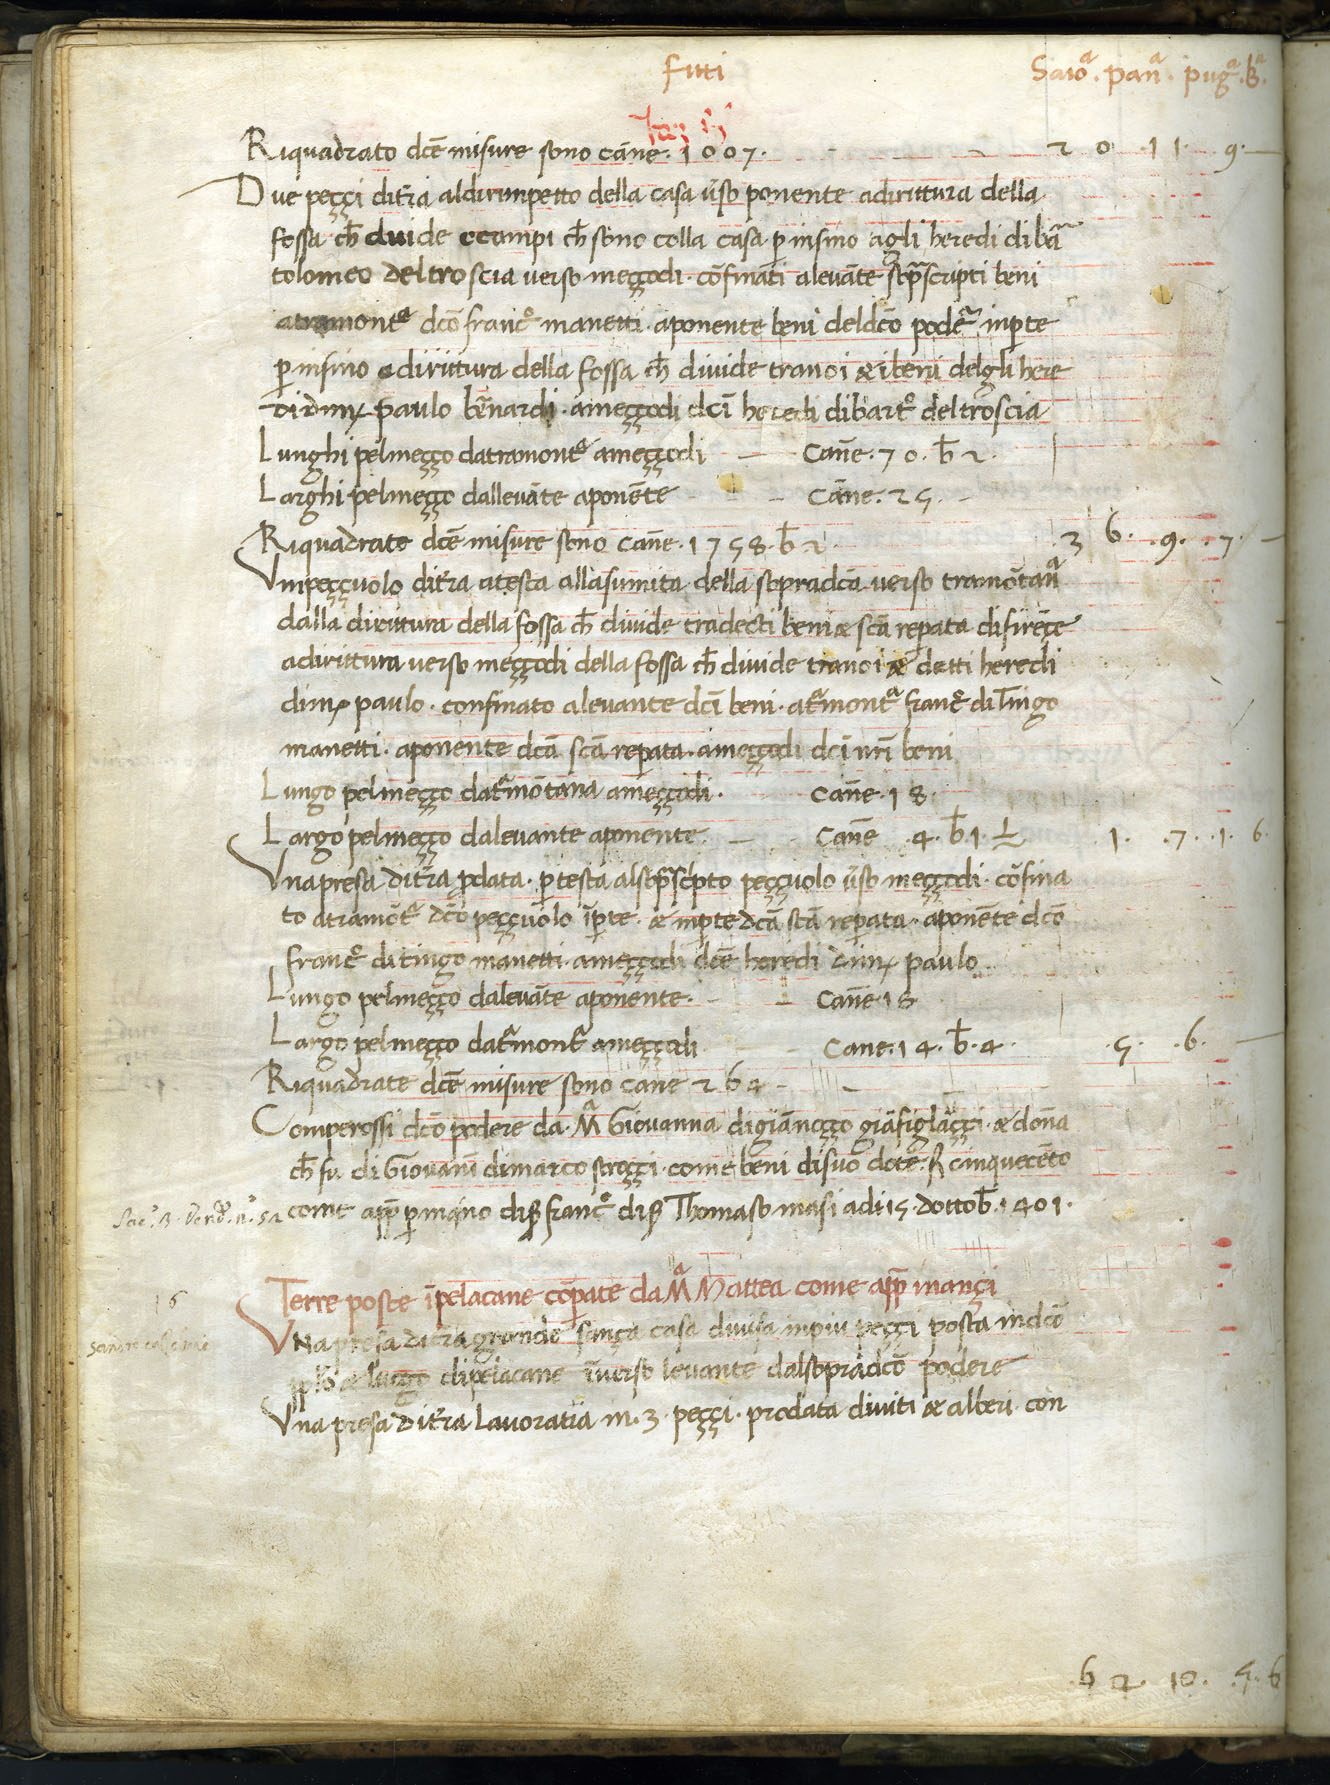 fitti
Saioᵃ. panᵃ. pugᵃ. bᵃ.
Riquadrato dc̄e misure sono cāne. 1007. 2 0. 11. 9.
Due peççi dit̄ra aldirimpetto della casa ūso ponente adirittura della
fossa ch̄ divide ecampi ch̄ sono colla casa p̄ insino agli heredi dibar̄
tolomeo deltroscia verso meççodi. cōfinati alevāte sopr̄ascripti beni
atramontᵃ dc̄o franc̊ manetti. aponente beni deldc̄o poder̄ inp̄te
p̄ insino adirittura della fossa ch̄ divide tranoi & ibeni delgli here
di dim̄ paulo bēnardi. ameççodi dc̄i heredi dibart̊ deltroscia
Lunghi pelmeçço datramontᵃ ameççodi — Cañe. 70. b̄ 2.
Larghi pelmeçço dallevāte aponēte — Cāne. 25.
Riquadrate dc̄e misure sono cañe. 1758. b̄ 2. 3 6. 9. 7.
Vnpeççuolo dit̄ra atesta allasumita della sopradc̄a verso tramōtanᵃ
dalla dirittura della fossa ch̄ divide tradecti beni & sc̄a reparata difirēçe
adirittura verso meççodi della fossa ch̄ divide tranoi & detti heredi
dim̄ paulo. confinato alevante dc̄i beni. atr̄montᵃ franc̊ ditingo
manetti. aponente dc̄a sc̄a rep̄ata. ameççodi dc̄i nr̄i beni
Lungo pelmeçço datr̄mōtana ameççodi. Cañe. 18.
Largo pelmeçço dalevante aponente. — Cañe. 4. b̄. 1. ½ 1. 7. 1. 6.
Vnapresa dit̄ra p̄data. p̄ testa alsopr̄asc̄pto peççuolo ūso meççodi. cōfina
to atramōtᵃ dc̄o peççuolo īp̄te. & inp̄te dc̄a sc̄a rep̄ata. aponēte dc̄o
franc̊ ditingo manetti. ameççodi dc̄e heredi dim̄ paulo
Lungo pelmeçço dalevāte aponente. Cañe. 18
Largo pelmeçço datr̄montᵃ ameççodi — Cane. 14. b̄. 4. 5. 6.
Riquadrate dc̄e misure sono cāne 264 —
Comperossi dc̄o podere da. Mᵃ Giovanna digiānoçço giāfiglaççi. & doña
ch̄ fu di Giovañi dimarco stroççi. come beni disuo dote. cinquecēto
come app̄ p̄ mano di franc̊ di Thomaso masi adi 15. dottob̄. 1401.
Terre poste īpelacane cōp̄ate da Mᵃ Mattea come app̄ inançi
16
Vna presa dit̄ra grande sança casa divisa inpiu peççi posta indc̄o
& luogo dipelacane īverso levante dalsopradc̄o podere
Vna presa dit̄ra Lavoratia in. 3. peççi. prodata diviti & alberi. con
62. 10. 5. 6